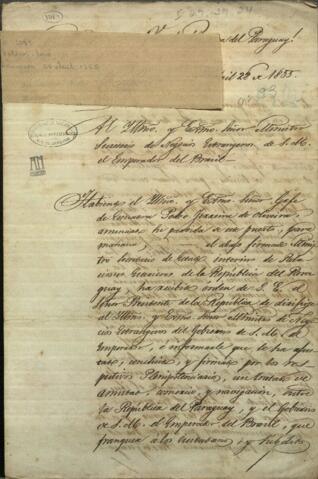 I-29,29,24
del Paraguay!
Abril 28 de 1855.
Al Illmo. y Exmo. Señor Ministro
Secretario de Negocios Estrangeros de S. M.
el Emperador del Brasil
Habiendo el Illmo. y Exmo. Señor Gefe
de Escuadra Pedro Ferreira de Oliveira,
de este puerto, para
mañana, el abajo firmado Minis
tro Secretario de interino de Rela
ciones Esteriores de la República del Para
guay, ha recibido orden de S. E. el
Señor Presidente de la República de dirigirse
al Illmo. y Exmo. Señor Ministro de Ne
gocios Estrangeros del Gobierno de S. M. el
Emperador, e informarle que se ha ajus
tado, concluido, y firmado por los res
pectivos Plenipotenciarios, un tratado de
amistad, comercio, y navegación, entre
la República del Paraguay, y el Gobierno
de S. M. el Emperador del Brasil, que
franquea a los ciudadanos, y subditos